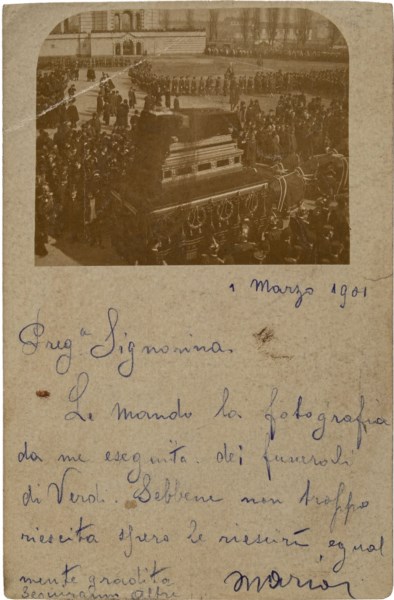 1 Marzo 1901
Preg.ª Signorina.
Le mando la fotografia
da me eseguita dei funerali
di Verdi. Sebbene non troppo
riescita spero le riescirà egual
mente gradita
Seguiranno altre
Mario